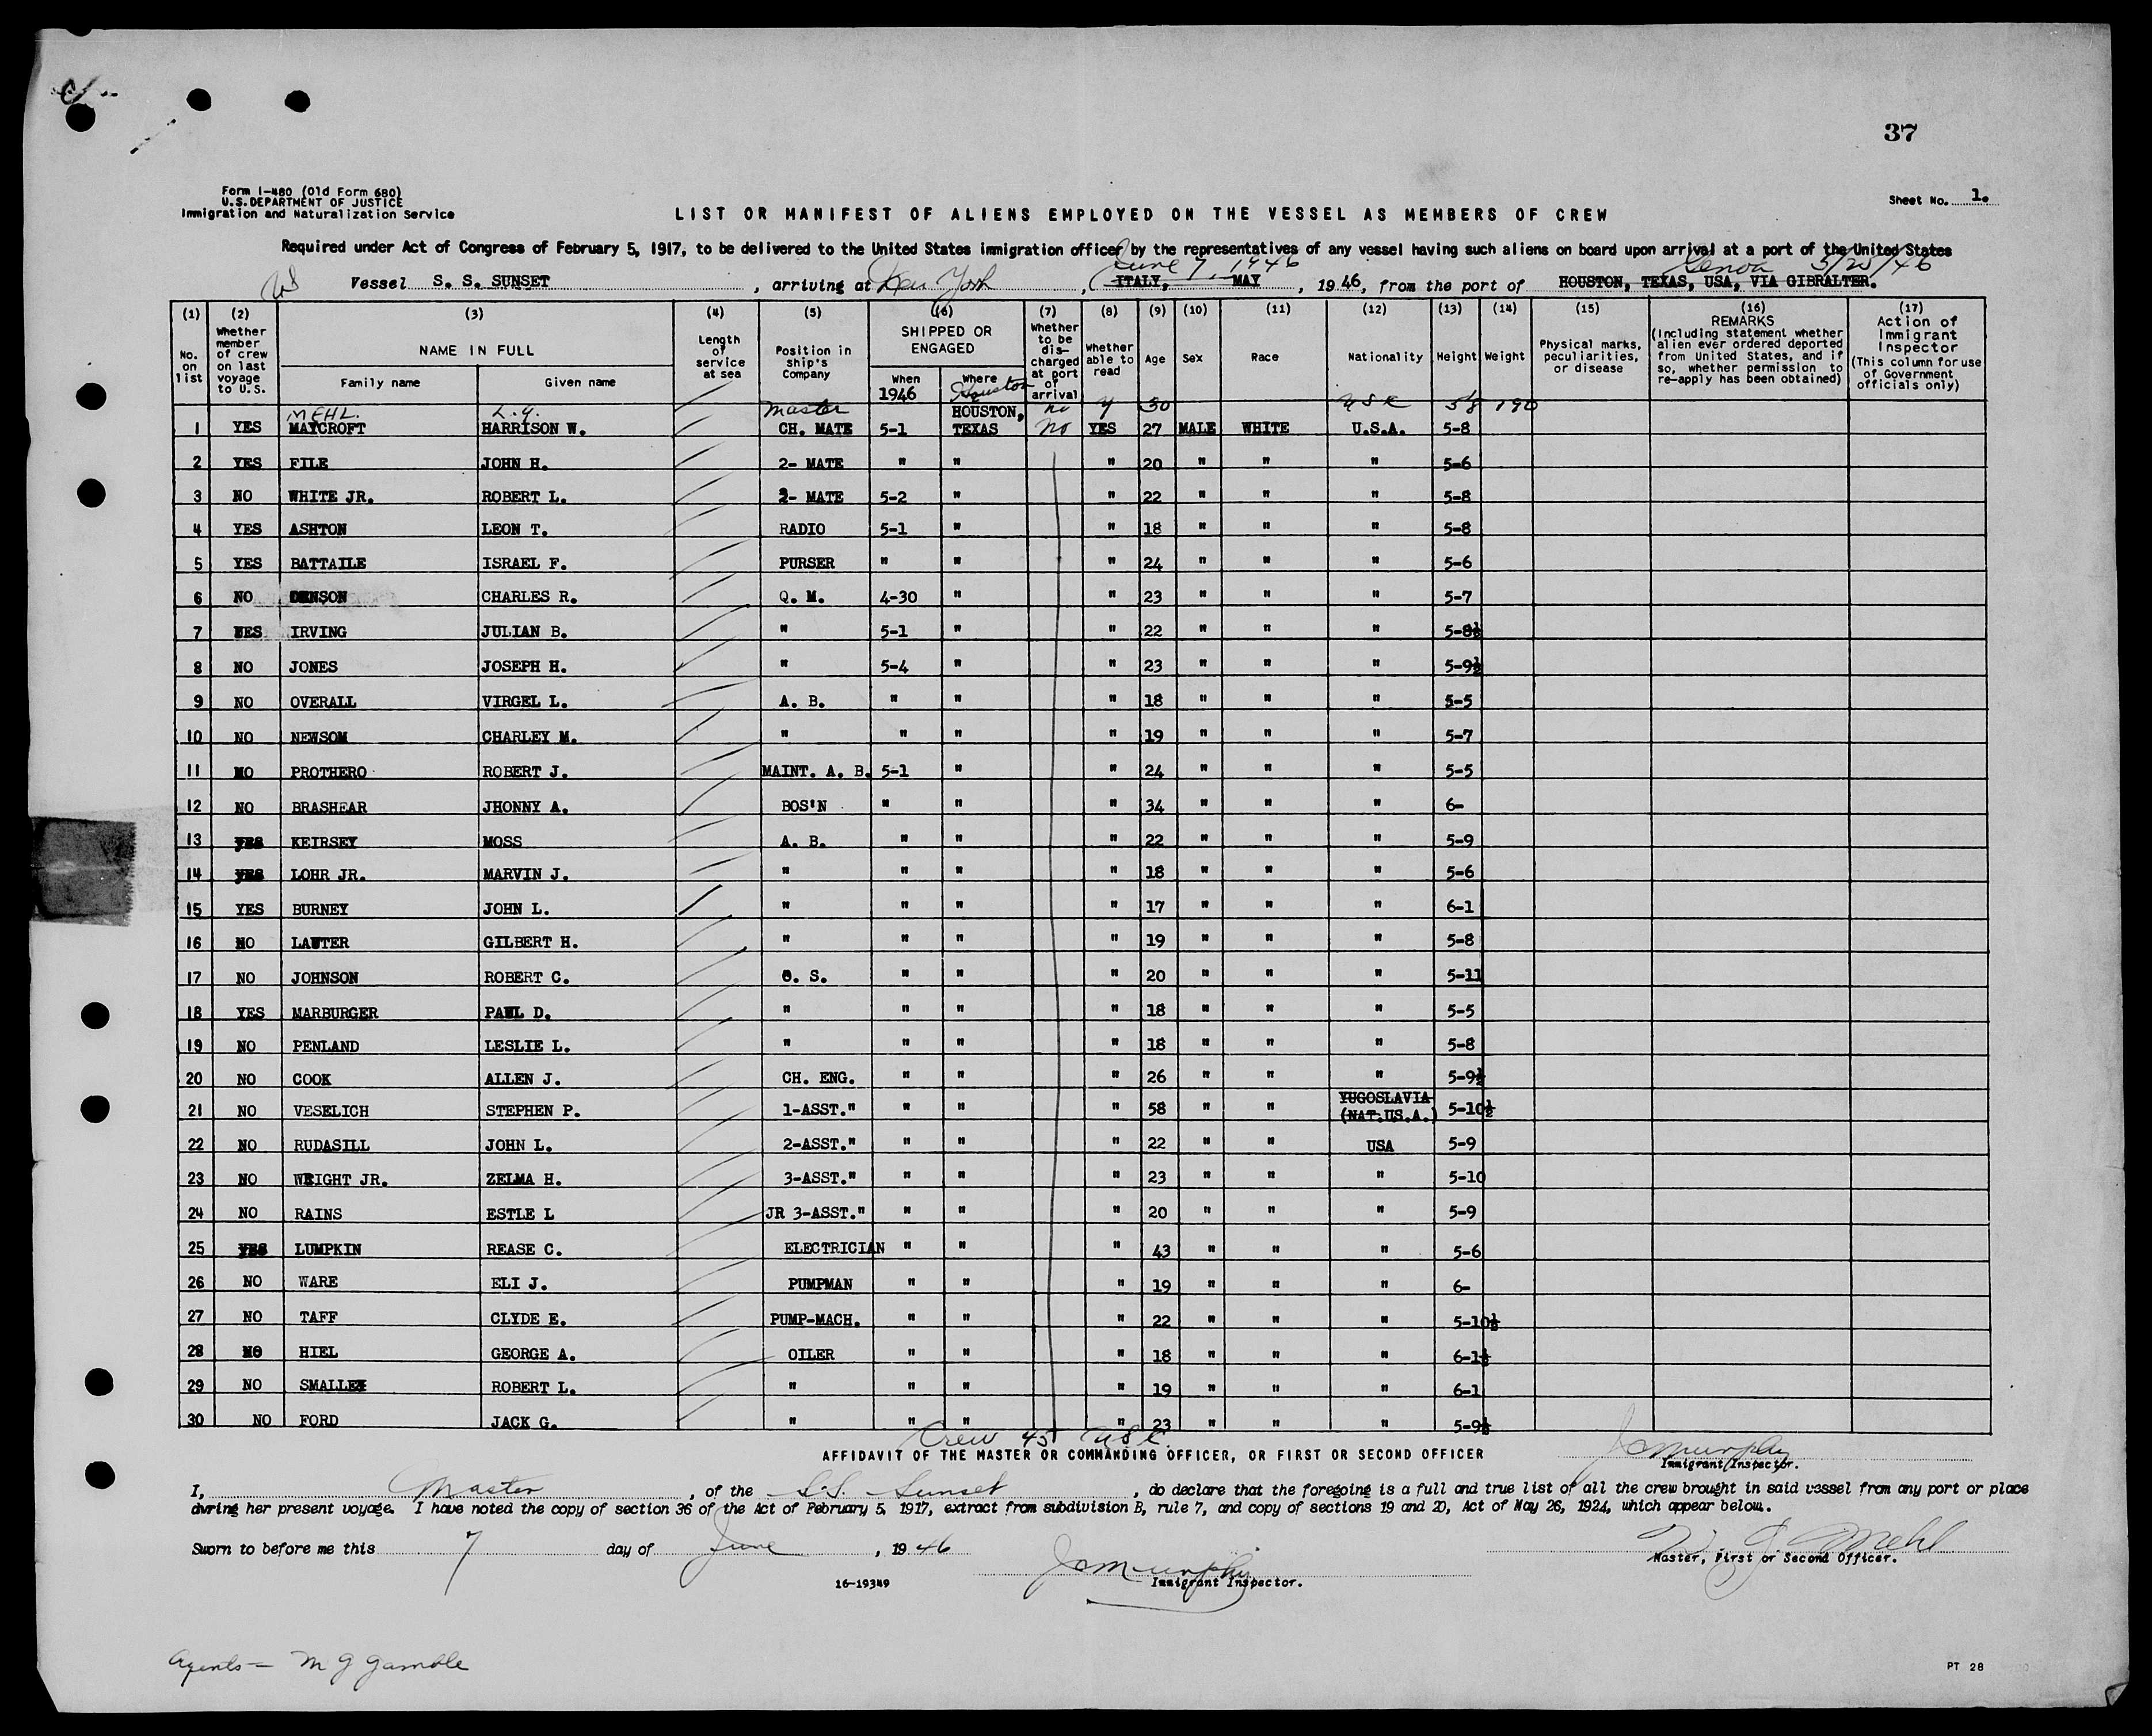 37
Form I-480 (Old Form 680)
U.S. DEPARTMENT OF JUSTICE
Immigration and Naturalization Service
Sheet No. 1.
LIST OR MANIFEST OF ALIENS EMPLOYED ON THE VESSEL AS MEMBERS OF CREW
Required under Act of Congress of February 5, 1917, to be delivered to the United States immigration officer by the representatives of any vessel having such aliens on board upon arrival at a port of the United States
June 7, 1946 Genoa 5/20/46
Vessel S. S. SUNSET, arriving at New York, ITALY, MAY, 1946, from the port of HOUSTON, TEXAS, USA, VIA GIBRALTER.
(1) (2) (3) (4) (5) (6) (7) (8) (9) (10) (11) (12) (13) (14) (15) (16) (17)
No. on list
Whether member of crew on last voyage to U.S.
NAME IN FULL
Family name Given name
Length of service at sea
Position in ship's Company
SHIPPED OR ENGAGED
When 1946 Where Houston
Whether to be discharged at port of arrival
Whether able to read
Age Sex Race Nationality Height Weight
Physical marks, peculiarities, or disease
REMARKS (Including statement whether alien ever ordered deported from United States, and if so, whether permission to re-apply has been obtained)
Action of Immigrant Inspector (This column for use of Government officials only)
MEHL L.G. Master HOUSTON, no y 30 USA 5'8 190
1 YES MAYCROFT HARRISON W. CH. MATE 5-1 TEXAS no YES 27 MALE WHITE U.S.A. 5-8
2 YES FILE JOHN H. 2- MATE " " " 20 " " " 5-6
3 NO WHITE JR. ROBERT L. 2- MATE 5-2 " " 22 " " " 5-8
4 YES ASHTON LEON T. RADIO 5-1 " " 18 " " " 5-8
5 YES BATTAILE ISRAEL F. PURSER " " " 24 " " " 5-6
6 NO DENSON CHARLES R. Q. M. 4-30 " " 23 " " " 5-7
7 YES IRVING JULIAN B. " 5-1 " " 22 " " " 5-8½
8 NO JONES JOSEPH H. " 5-4 " " 23 " " " 5-9½
9 NO OVERALL VIRGEL L. A. B. " " " 18 " " " 5-5
10 NO NEWSOM CHARLEY M. " " " " 19 " " " 5-7
11 NO PROTHERO ROBERT J. MAINT. A. B. 5-1 " " 24 " " " 5-5
12 NO BRASHEAR JHONNY A. BOS'N " " " 34 " " " 6-
13 YES KEIRSEY MOSS A. B. " " " 22 " " " 5-9
14 YES LOHR JR. MARVIN J. " " " " 18 " " " 5-6
15 YES BURNEY JOHN L. " " " " 17 " " " 6-1
16 NO LAUTER GILBERT H. " " " " 19 " " " 5-8
17 NO JOHNSON ROBERT C. O. S. " " " 20 " " " 5-11
18 YES MARBURGER PAUL D. " " " " 18 " " " 5-5
19 NO PENLAND LESLIE L. " " " " 18 " " " 5-8
20 NO COOK ALLEN J. CH. ENG. " " " 26 " " " 5-9½
21 NO VESELICH STEPHEN P. 1-ASST." " " " 58 " " YUGOSLAVIA (NAT.US.A.) 5-10½
22 NO RUDASILL JOHN L. 2-ASST." " " " 22 " " USA 5-9
23 NO WRIGHT JR. ZELMA H. 3-ASST." " " " 23 " " " 5-10
24 NO RAINS ESTLE L JR 3-ASST." " " " 20 " " " 5-9
25 YES LUMPKIN REASE C. ELECTRICIAN " " " 43 " " " 5-6
26 NO WARE ELI J. PUMPMAN " " " 19 " " " 6-
27 NO TAFF CLYDE E. PUMP-MACH. " " " 22 " " " 5-10½
28 NO HIEL GEORGE A. OILER " " " 18 " " " 6-1½
29 NO SMALLEY ROBERT L. " " " " 19 " " " 6-1
30 NO FORD JACK G. " " " " 23 " " " 5-9½
Crew 45 USC
AFFIDAVIT OF THE MASTER OR COMMANDING OFFICER, OR FIRST OR SECOND OFFICER
JCMurphy
Immigrant Inspector.
I, Master, of the S.S. Sunset, do declare that the foregoing is a full and true list of all the crew brought in said vessel from any port or place
during her present voyage. I have noted the copy of section 36 of the Act of February 5, 1917, extract from subdivision B, rule 7, and copy of sections 19 and 20, Act of May 26, 1924, which appear below.
Sworn to before me this 7 day of June, 1946
JCMurphy
Immigrant Inspector.
Mehl
Master, First or Second Officer.
16-19349
Agents - M G Gamble
PT 28